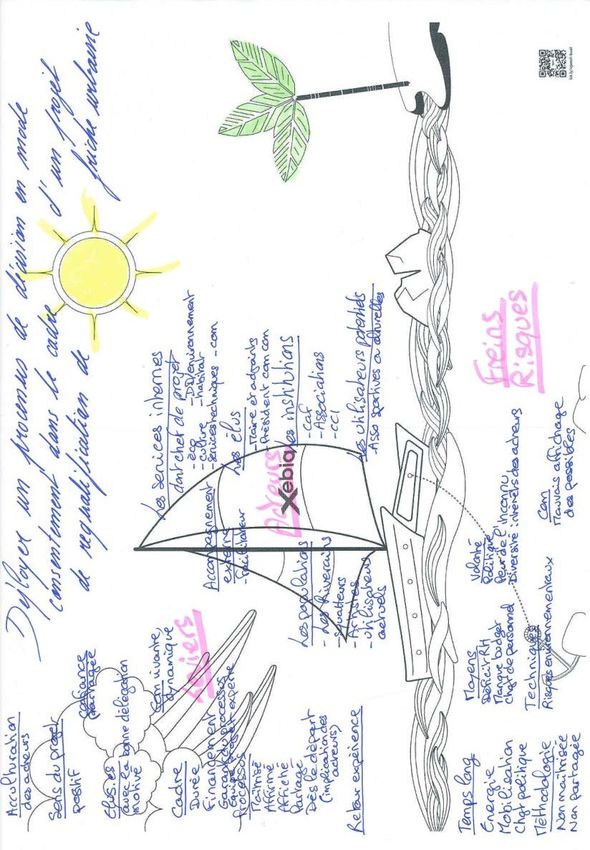 Déployer un processus de décision en mode
consentement dans le cadre d'un projet
de requalification de friche urbaine
Acculturation
des acteurs
Sens du projet
positif
Confiance
partagée
Elus.es
avec la bonne délégation
motivé
Com vivante
dynamique
Leviers
Cadre
Durée
Financement
Garant du processus
Processus
Maîtrisé
Affirmé
Affiché
Partagé
Dès le départ
(implication des
acteurs)
Retour expérience
Acteurs
Xebia
Les services internes
dont chef de projet
- éco
- culture
- DD/environnement
- habitat
- services techniques - com
Les élus
- Maire et adjoints
- Président com com
Les institutions
- Caf
- Associations
- CCI
Les utilisateurs potentiels
- Asso sportives ou culturelles
Accompagnement
externe
- Facilitateur
Les populations
- Les Riverains
- Artistes
- utilisateurs
actuels
Freins
Risques
Temps long
Energie
Mobilisation
Chgt politique
Méthodologie
Non maîtrisée
Non partagée
Moyens
Déficit RH
Manque budget
Chgt de personnel
Technique
Risques environnementaux
Volonté
Politique
Peur de l'inconnu
Diversité intérêts des acteurs
Com
Mauvais affichage
des possibles